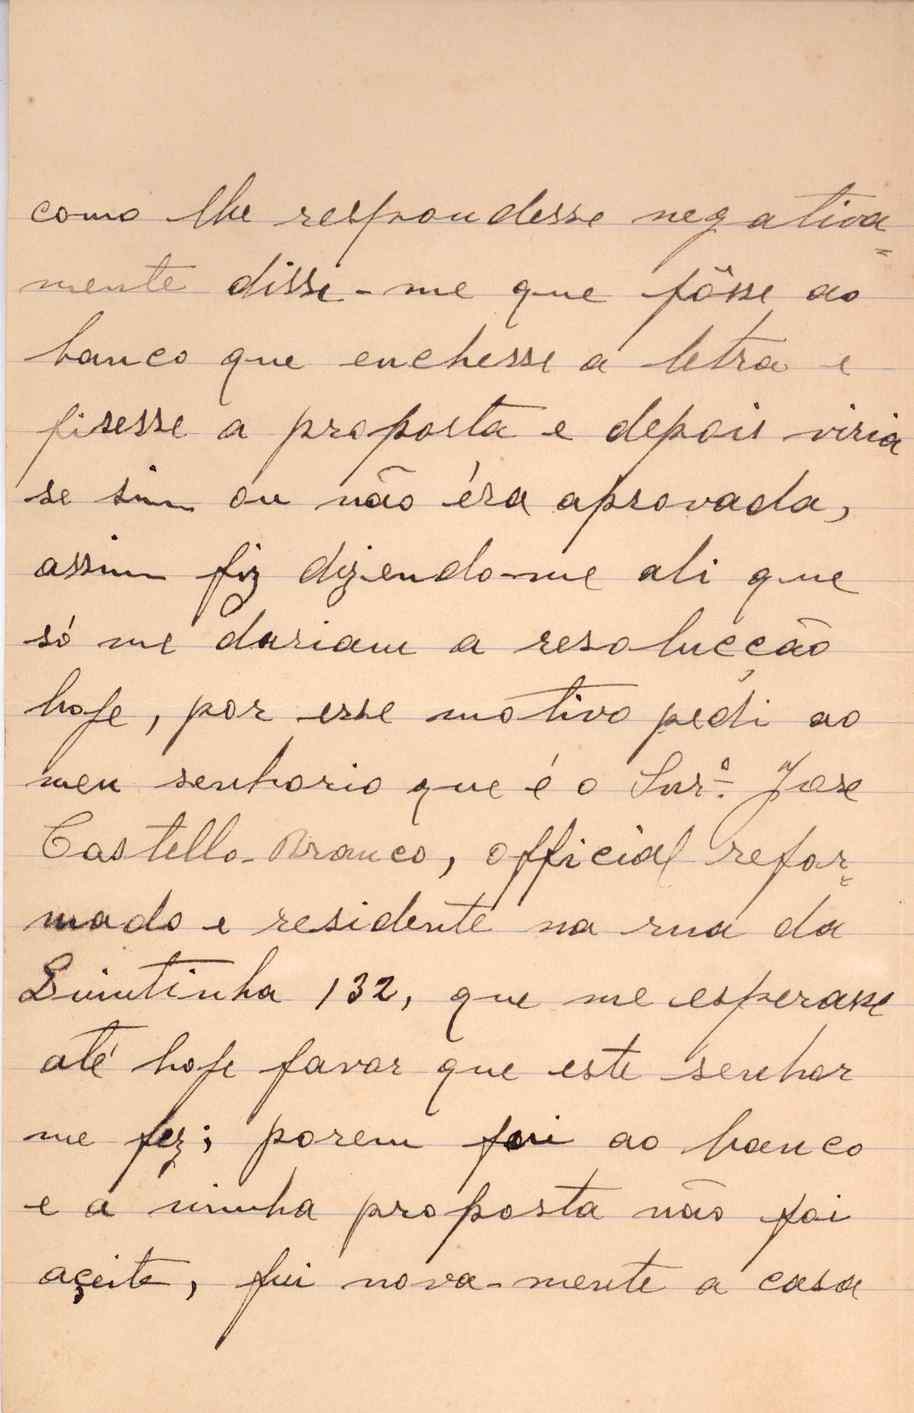 como lhe respondesse negativa=
mente disse-me que fôsse ao
banco que enchesse a letra e
fisesse a proposta e depois viria
se sim ou não éra aprovada,
assim fiz dizendo-me ali que
só me dariam a resolucção
hoje, por esse motivo pedi ao
meu senhorio que é o Snrº. Jose
Castello-Branco, official refor=
mado e residente na rua da
Quintinha 132, que me esperasse
até hoje favor que este senhor
me fez; porem foi ao banco
e a minha proposta não foi
açeite, fui nova-mente a casa